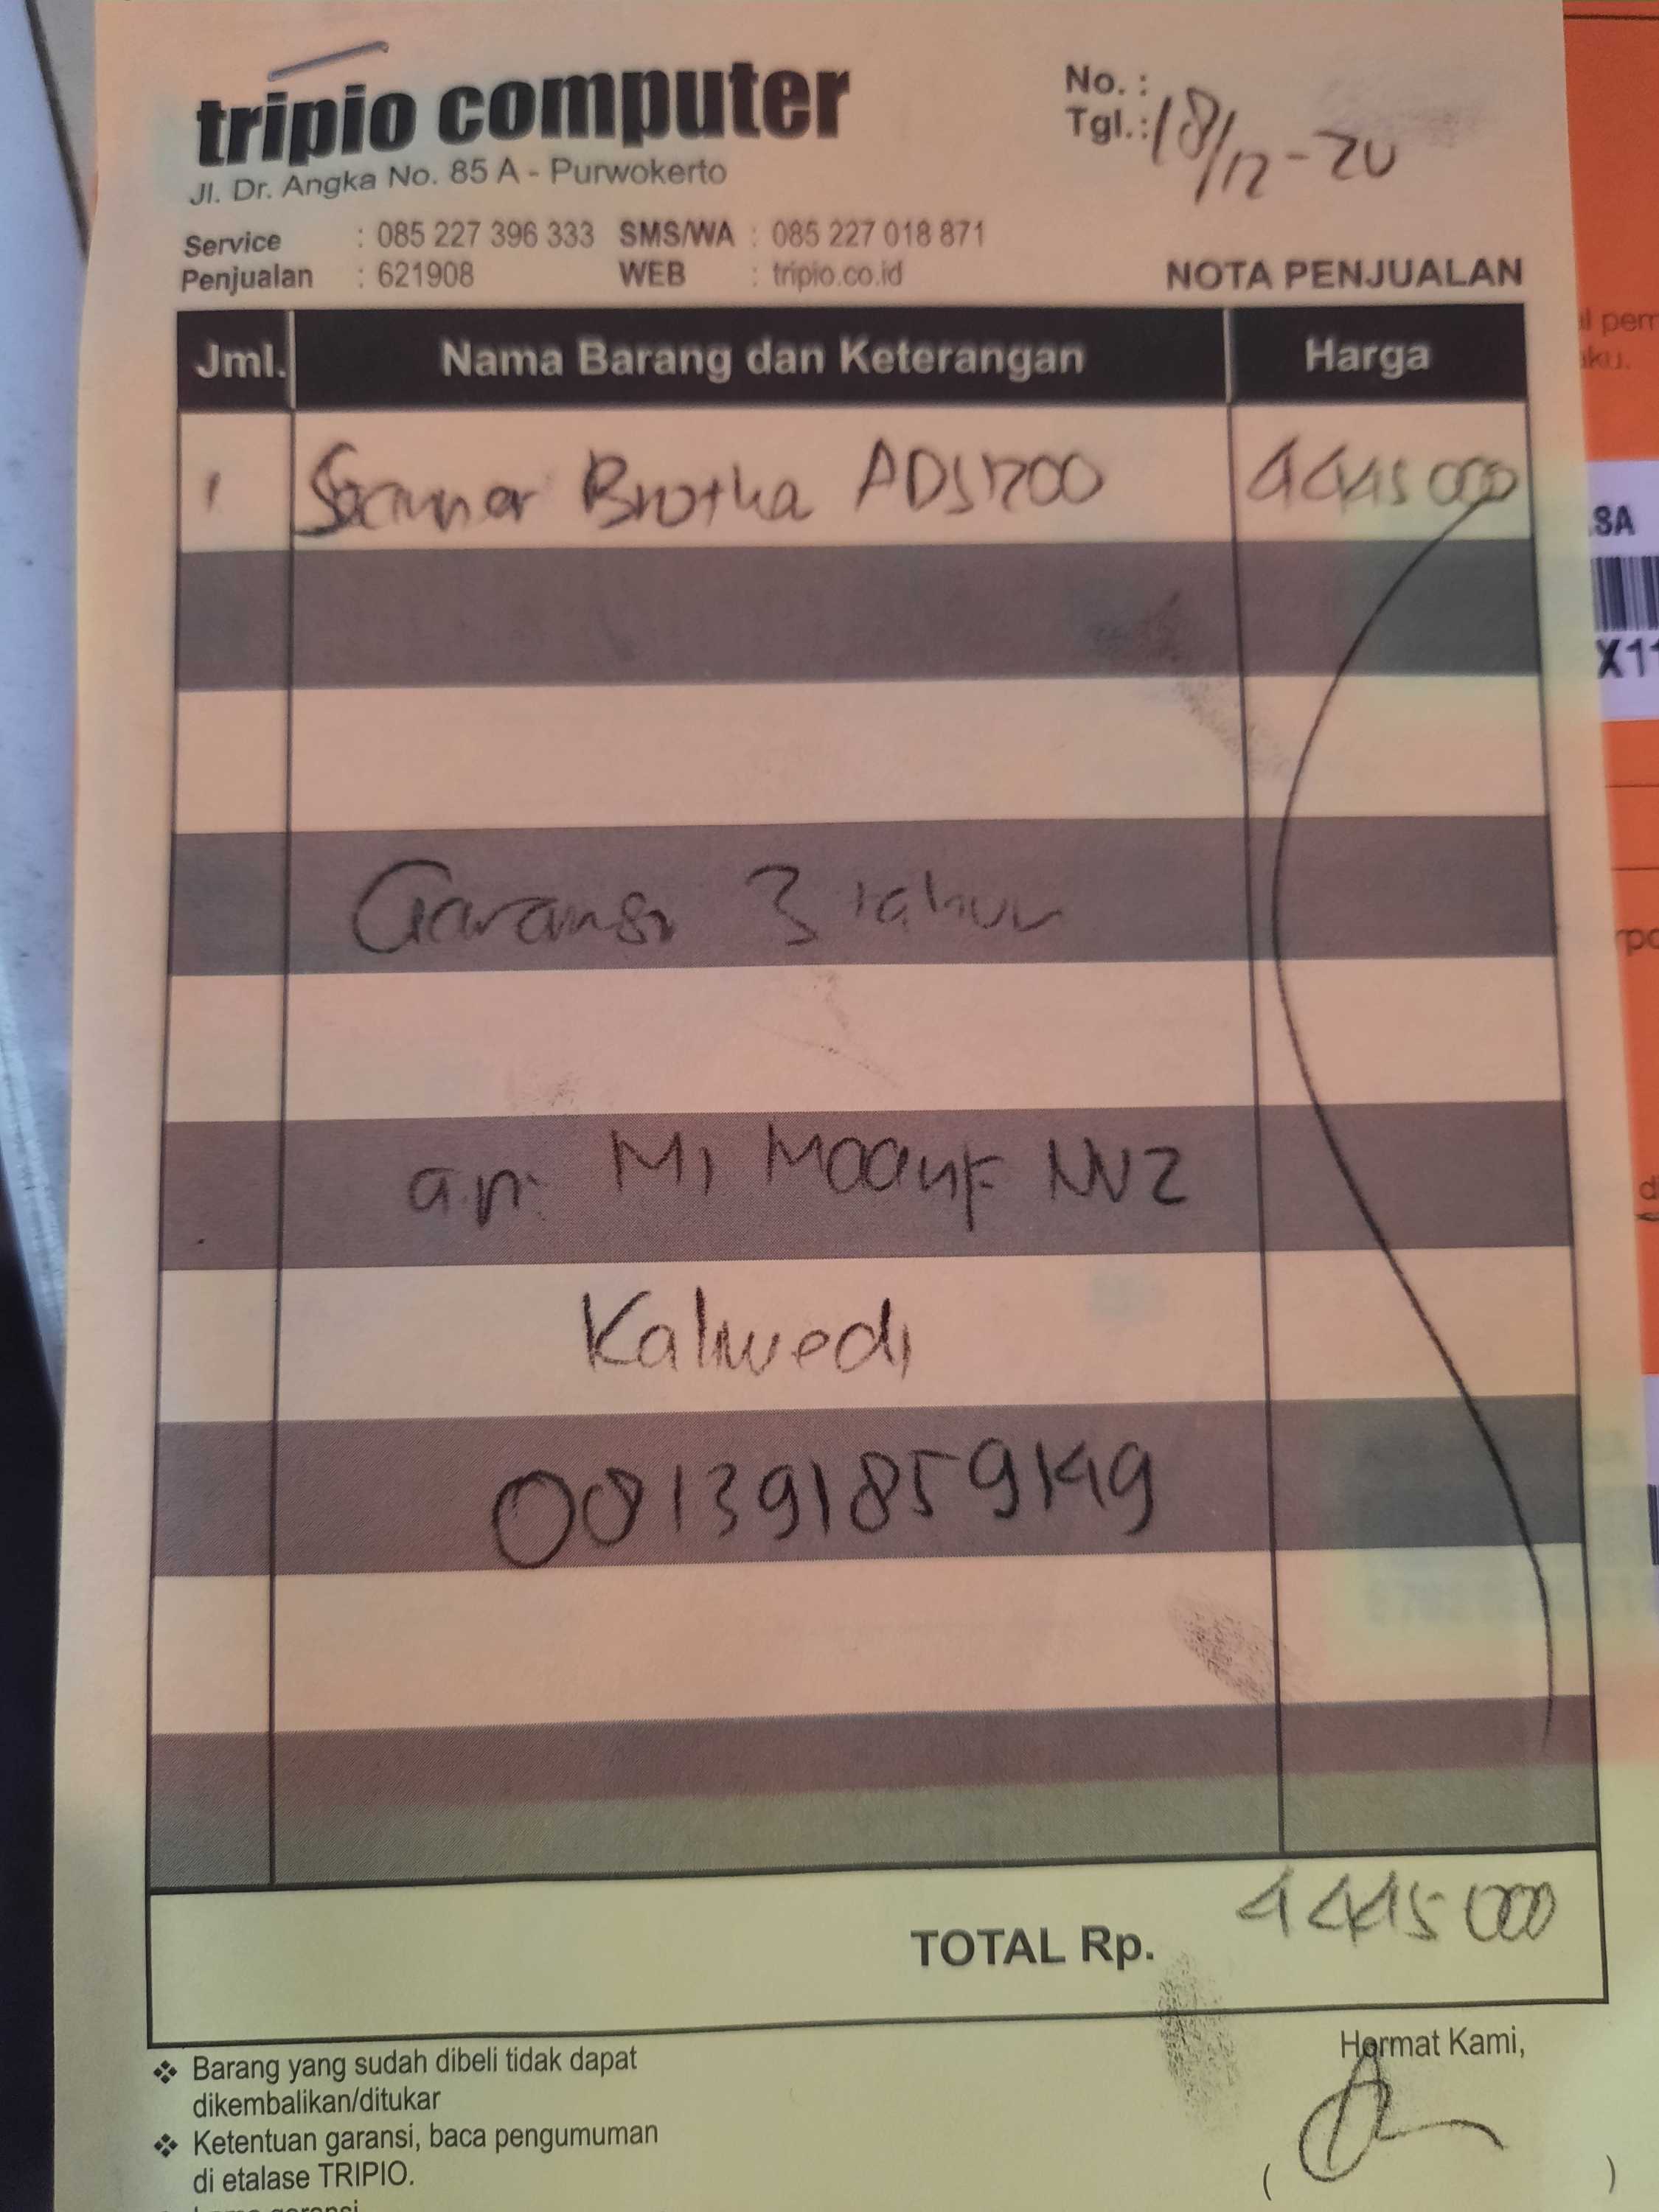 tripio computer
Jl. Dr. Angka No. 85 A - Purwokerto
No. :
Tgl.: 18/12-20
Service : 085 227 396 333 SMS/WA : 085 227 018 871
Penjualan : 621908 WEB : tripio.co.id
NOTA PENJUALAN
Jml. Nama Barang dan Keterangan Harga
1 Scanner Brother ADS1200 4445000
Garansi 3 tahun
a.n. MI Maarif NU 2
Kaliwedi
081391859149
TOTAL Rp. 4445000
Hormat Kami,
❖ Barang yang sudah dibeli tidak dapat
dikembalikan/ditukar
❖ Ketentuan garansi, baca pengumuman
di etalase TRIPIO.
( )
SA
X11